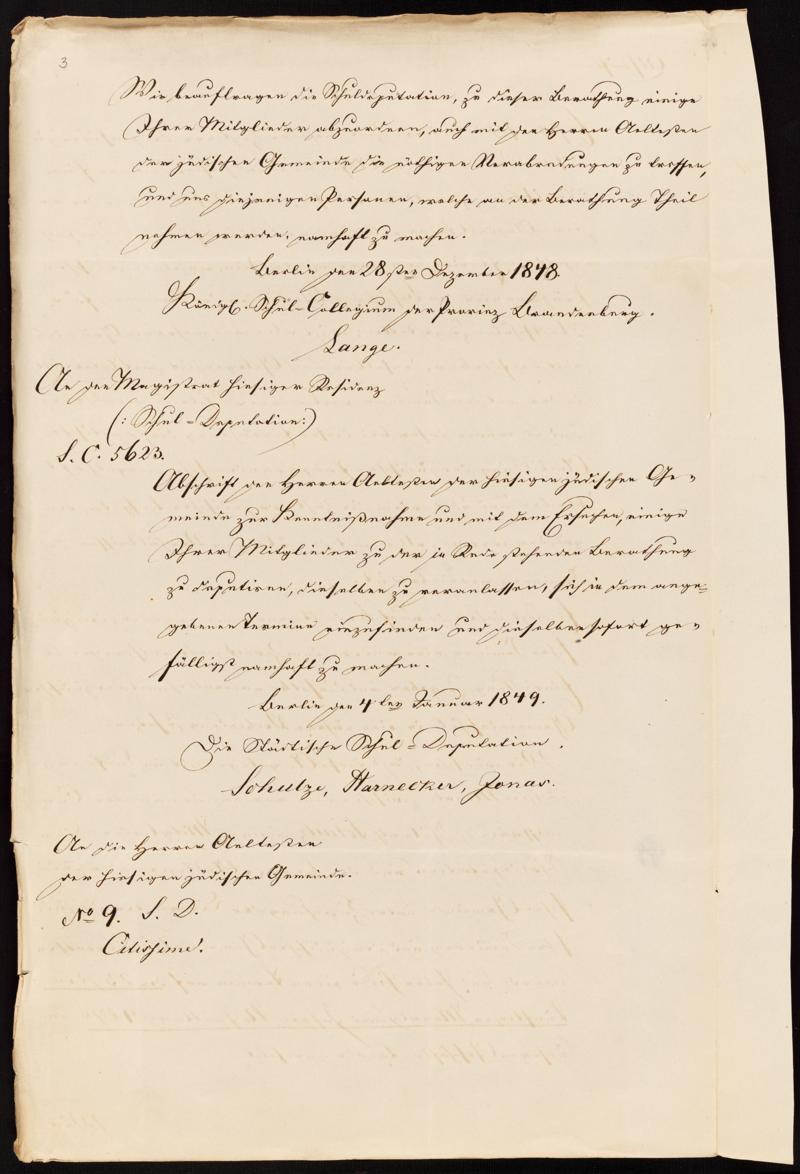 3
Wir beauftragen die Schuldeputation, zu dieser Berathung einige
Ihrer Mitglieder abzuordnen, auch mit den Herren Aeltesten
der jüdischen Gemeinde die nöthigen Verabredungen zu treffen,
und uns diejenigen Personen, welche an der Berathung Theil
nehmen werden, namhaft zu machen.
Berlin den 28sten Dezember 1848.
Königl. Schul-Collegium der Provinz Brandenburg.
Lange.
An den Magistrat hiesiger Residenz
(: Schul-Deputation:)
S. C. 5623.
Abschrift den Herren Aeltesten der hiesigen jüdischen Ge-
meinde zur Kenntnißnahme und mit dem Ersuchen, einige
Ihrer Mitglieder zu der in Rede stehenden Berathung
zu deputiren, dieselben zu veranlassen, sich in dem ange-
gebenen Termine einzufinden und dieselben sofort ge-
fälligst namhaft zu machen.
Berlin den 4ten Januar 1849.
Die Städtische Schul-Deputation.
Schulze, Harnecker, Jonas.
An die Herren Aeltesten
der hiesigen jüdischen Gemeinde.
No 9. S. D.
Citissime!